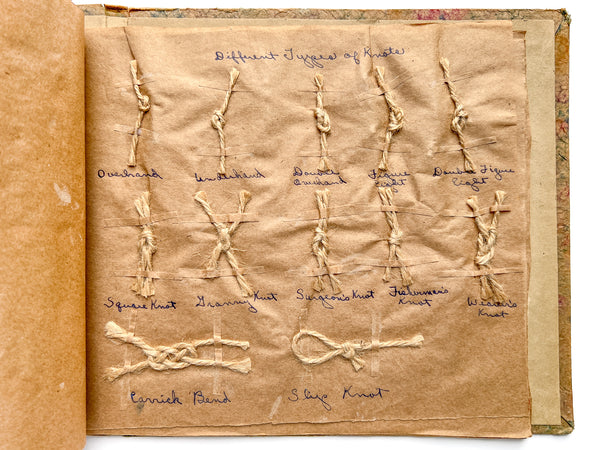 Different Types of Knots
Overhand
Underhand
Double
Overhand
Figure
Eight
Double Figure
Eight
Square Knot
Granny Knot
Surgeon's Knot
Fisherman's
Knot
Weaver's
Knot
Carrick Bend
Slip Knot